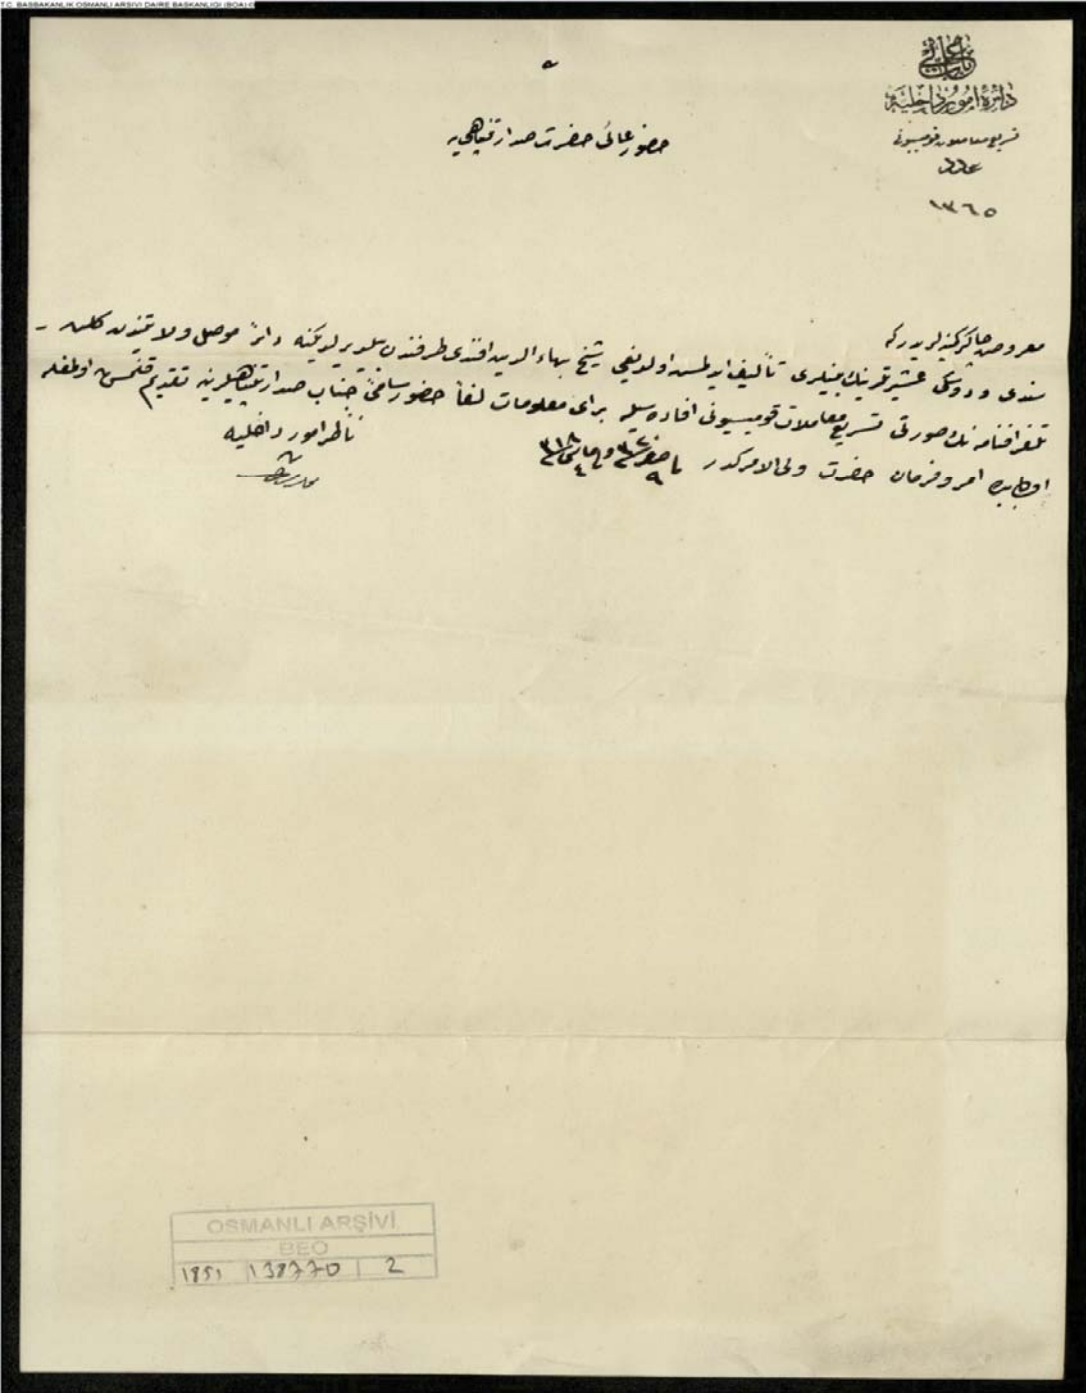 T.C. BASBAKANLIK OSMANLI ARSIVI DAIRE BASKANLIGI (BOA)
باب عالی
دائرهٔ امور داخلیه
تسریع معاملات قومیسیونی
عدد
١٣٦٥
حضور عالی حضرت صدارتپناهی یه
معروض چاکر کمینه لریدر که
سندی و دوسکی عشیرتلرینك بینلری تألیف ایدلمش اولدیغی شیخ بهاء الدین افندی طرفندن بیلدیرلدیکنه دائر موصل ولایتندن کلن
تلغرافنامه نك صورتی تسریع معاملات قومیسیونی افاده سیله برای معلومات لفاً حضور سامئ جناب صدارتپناهیلرینه تقدیم قلنمش اولمغله
اولبابده امر و فرمان حضرت ولی الامرکدر فی صفر سنه و فی مارت سنه ٣١٨
ناظر امور داخلیه
OSMANLI ARŞİVİ
BEO
1851 138770 2